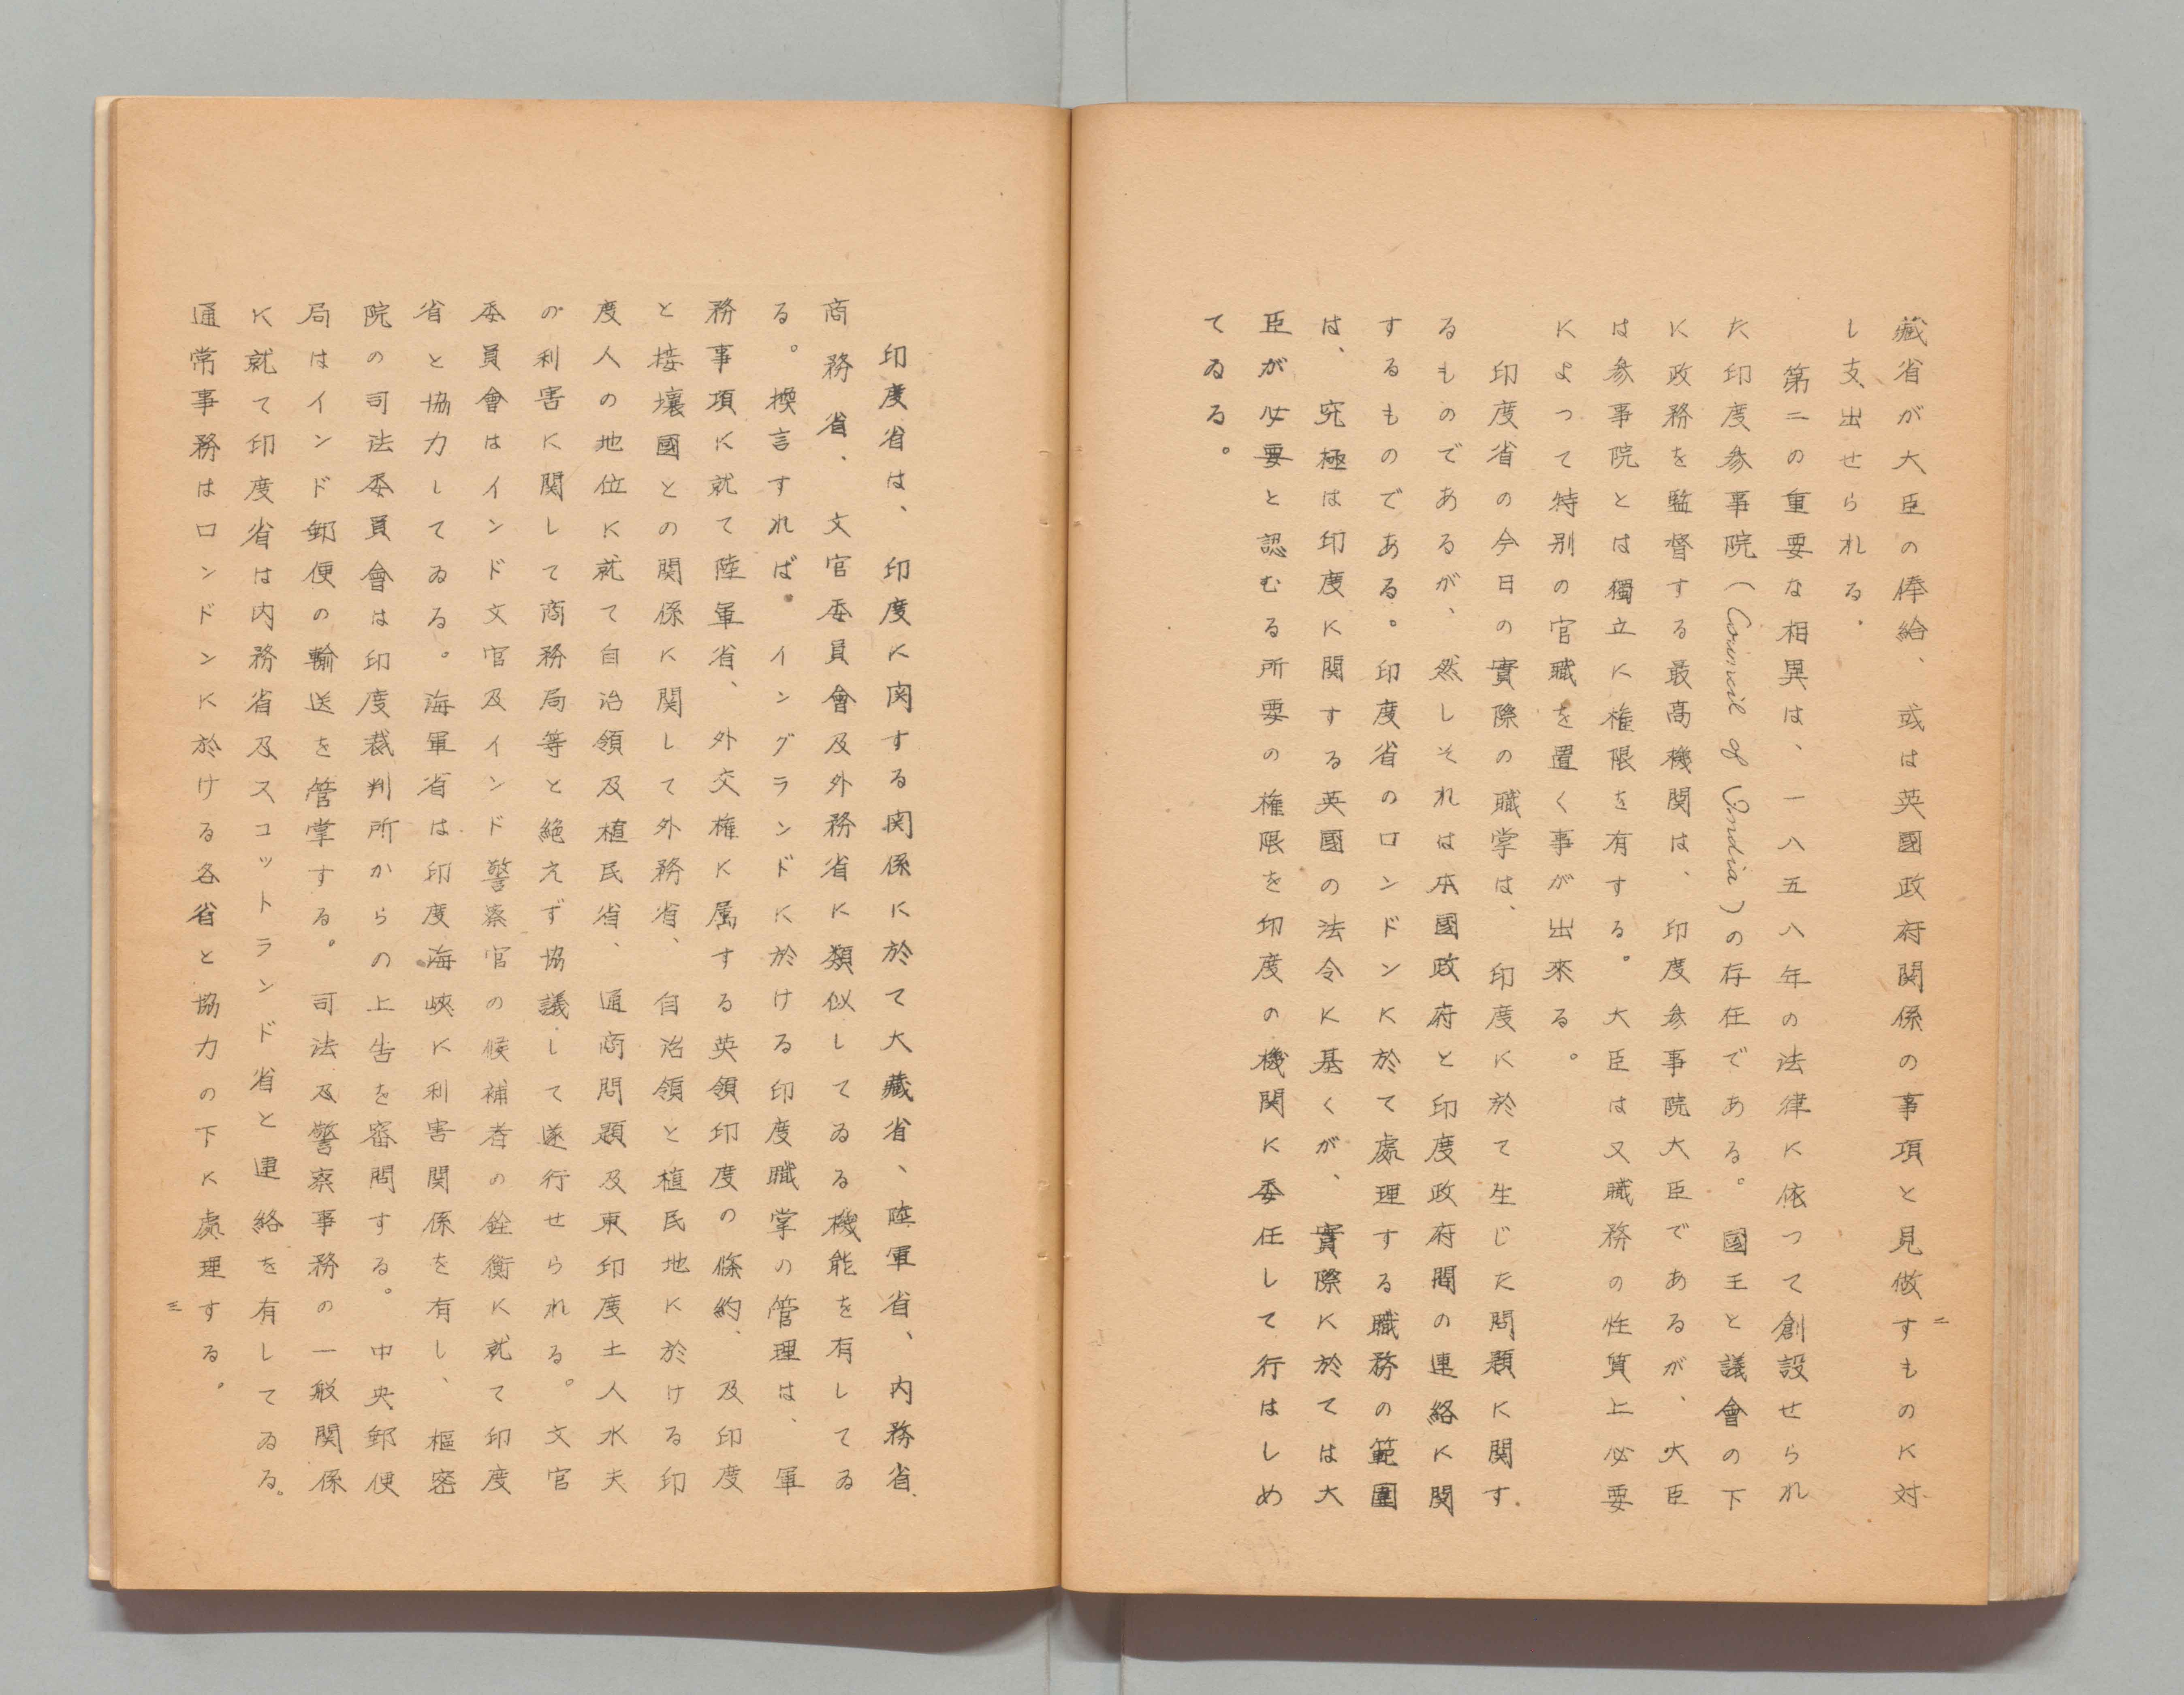 二
藏省が大臣の俸給、或は英國政府関係の事項と見做すものに対
し支出せられる。
第二の重要な相異は、一八五八年の法律に依つて創設せられ
た印度参事院(Council of India)の存在である。國王と議會の下
に政務を監督する最高機関は、印度参事院大臣であるが、大臣
は参事院とは獨立に権限を有する。大臣は又職務の性質上必要
によつて特別の官職を置く事が出來る。
印度省の今日の實際の職掌は、印度に於て生じた問題に関す
るものであるが、然しそれは本國政府と印度政府間の連絡に関
するものである。印度省のロンドンに於て處理する職務の範圍
は、究極は印度に関する英國の法令に基くが、實際に於ては大
臣が必要と認むる所要の権限を印度の機関に委任して行はしめ
てゐる。
印度省は、印度に関する関係に於て大藏省、陸軍省、内務省、
商務省、文官委員會及外務省に類似してゐる機能を有してゐ
る。換言すれば。イングランドに於ける印度職掌の管理は、軍
務事項に就て陸軍省、外交権に属する英領印度の條約、及印度
と接壤國との関係に関して外務省、自治領と植民地に於ける印
度人の地位に就て自治領及植民省、通商問題及東印度土人水夫
の利害に関して商務局等と絶えず協議して遂行せられる。文官
委員會はインド文官及インド警察官の候補者の銓衡に就て印度
省と協力してゐる。海軍省は印度海峽に利害関係を有し、樞密
院の司法委員會は印度裁判所からの上告を審問する。中央郵便
局はインド郵便の輸送を管掌する。司法及警察事務の一般関係
に就て印度省は内務省及スコットランド省と連絡を有してゐる。
通常事務はロンドンに於ける各省と協力の下に處理する。
三